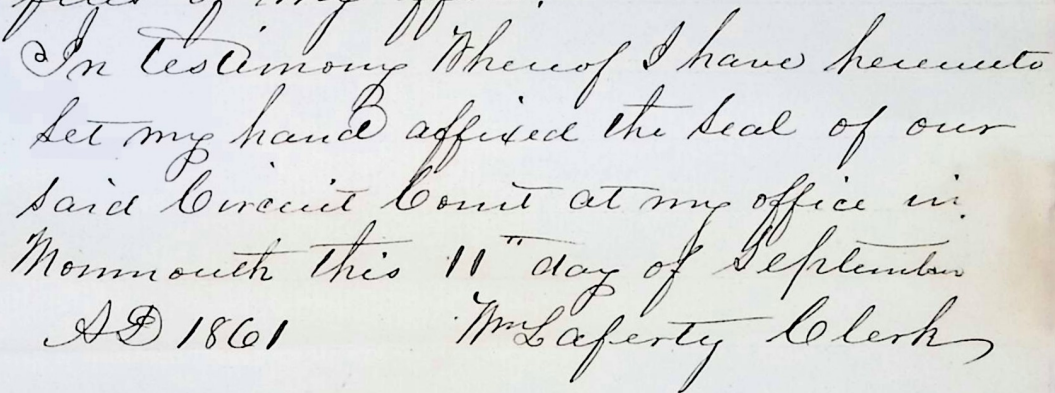 files of my office.
In testimony Whereof I have hereunto
set my hand affixed the seal of our
said Circuit Court at my office in
Monmouth this 11" day of September
AD 1861 Wm Laferty Clerk